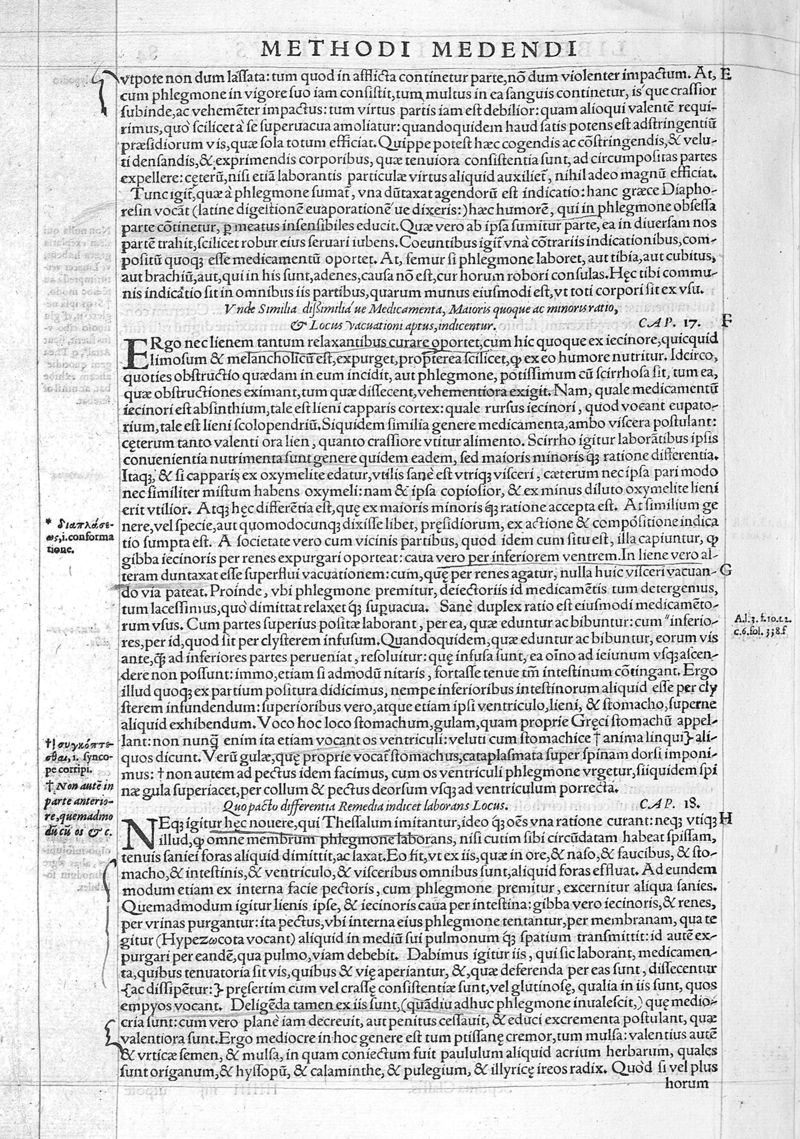 METHODI MEDENDI
vtpote non dum lassata: tum quod in afflicta continetur parte, nõ dum violenter impactum. At, E
cum phlegmone in vigore suo iam consistit, tum multus in ea sanguis continetur, is que crassior
subinde, ac vehemēter impactus: tum virtus partis iam est debilior: quam alioqui valentē requi-
rimus, quo scilicet a se superuacua amoliatur: quandoquidem haud satis potens est adstringentiū
præsidiorum vis, quæ sola totum efficiat. Quippe potest hæc cogendis ac cõstringendis, & velu-
ti densandis, & exprimendis corporibus, quæ tenuiora consistentia sunt, ad circumpositas partes
expellere: cęterũ, nisi etiã laborantis particulæ virtus aliquid auxiliet᷑, nihil adeo magnũ efficiat.
Tunc igit᷑, quæ à phlegmone sumat᷑, vna dũtaxat agendorũ est indicatio: hanc græce Diapho-
resin vocãt (latine digestionē euaporationē ue dixeris:) hæc humorē, qui in phlegmone obsessa
parte cõtinetur, ꝑ meatus insensibiles educit. Quæ vero ab ipsa sumitur parte, ea in diuersam nos
partē trahit, scilicet robur eius seruari iubens. Coeuntibus igit᷑ vna cõtrariis indicationibus, com-
positũ quoqꝫ esse medicamentũ oportet. At, femur si phlegmone laboret, aut tibia, aut cubitus,
aut brachiũ, aut, qui in his sunt, adenes, causa nõ est, cur horum robori consulas. Hęc tibi commu-
nis indicatio sit in omnibus iis partibus, quarum munus eiusmodi est, vt toti corpori sit ex vsu.
Vnde Similia dissimilia ue Medicamenta, Maioris quoque ac minoris ratio,
& Locus vacuationi aptus, indicentur. CAP. 17. F
ERgo nec lienem tantum relaxantibus curare oportet, cum hic quoque ex iecinore, quicquid
limosum & melancholicũ est, expurget, propterea scilicet, ꝙ ex eo humore nutritur. Idcirco,
quoties obstructio quædam in eum incidit, aut phlegmone, potissimum cũ scirrhosa sit, tum ea,
quæ obstructiones eximant, tum quæ dissecent, vehementiora exigit. Nam, quale medicamentũ
iecinori est absinthium, tale est lieni capparis cortex: quale rursus iecinori, quod vocant eupato-
rium, tale est lieni scolopendriũ. Siquidem similia genere medicamenta, ambo viscera postulant:
cęterum tanto valenti ora lien, quanto crassiore vtitur alimento. Scirrho igitur laborãtibus ipsis
conuenientia nutrimenta sunt genere quidem eadem, sed maioris minoris qꝫ ratione differentia.
Itaqꝫ, & si capparis ex oxymelite edatur, vtilis sanè est vtriqꝫ visceri, cæterum nec ipsa pari modo
nec similiter mistum habens oxymeli: nam & ipsa copiosior, & ex minus diluto oxymelite lieni
erit vtilior. Atqꝫ hęc differētia est, quę ex maioris minoris qꝫ ratione accepta est. At similium ge
nere, vel specie, aut quomodocunqꝫ dixisse libet, pręsidiorum, ex actione & compositione indica
tio sumpta est. A societate vero cum vicinis partibus, quod idem cum situ est, illa capiuntur, ꝙ
gibba iecinoris per renes expurgari oporteat: caua vero per inferiorem ventrem. In liene vero al-
teram duntaxat esse superflui vacuationem: cum, quę per renes agatur, nulla huic visceri vacuan- G
do via pateat. Proinde, vbi phlegmone premitur, deiectoriis id medicamētis tum detergenus,
tum lacessimus, quo dimittat relaxet qꝫ suꝑuacua. Sanè duplex ratio est eiusmodi medicamēto-
rum vsus. Cum partes superius positæ laborant, per ea, quæ eduntur ac bibuntur: cum "inferio-
res, per id, quod sit per clysterem infusum. Quandoquidem, quæ eduntur ac bibuntur, eorum vis
ante, qꝫ ad inferiores partes perueniat, resoluitur: quę infusa sunt, ea oĩno ad ieiunum vsqꝫ ascen-
dere non possunt: immo, etiam si admodũ nitaris, fortasse tenue tm̃ intestinum cõtingant. Ergo
illud quoqꝫ ex partium positura didicimus, nempe inferioribus intestinorum aliquid esse per cly
sterem infundendum: superioribus vero, atque etiam ipsi ventriculo, lieni, & stomacho, superne
aliquid exhibendum. Voco hoc loco stomachum, gulam, quam proprie Gręci stomachũ appel-
lant: non nunꝗ̃ enim ita etiam vocant os ventriculi: veluti cum stomachice † anima linqui} ali-
quos dicunt. Verũ gulæ, quę proprie vocat᷑ stomachus, cataplasmata super spinam dorsi imponi-
mus: † non autem ad pectus idem facimus, cum os ventriculi phlegmone vrgetur, siquidem spi
næ gula superiacet, per collum & pectus deorsum vsqꝫ ad ventriculum porrecta.
Quo pacto differentia Remedia indicet laborans Locus. CAP. 18.
NEqꝫ igitur hęc nouere, qui Thessalum imitantur, ideo qꝫ oēs vna ratione curant: neqꝫ vtiqꝫ H
illud, ꝙ omne membrum phlegmone laborans, nisi cutim sibi circũdatam habeat spissam,
tenuis saniei foras aliquid dimittit, ac laxat. Eo fit, vt ex iis, quæ in ore, & naso, & faucibus, & sto-
macho, & intestinis, & ventriculo, & visceribus omnibus sunt, aliquid foras effluat. Ad eundem
modum etiam ex interna facie pectoris, cum phlegmone premitur, excernitur aliqua sanies.
Quemadmodum igitur lienis ipse, & iecinoris caua per intestina: gibba vero iecinoris, & renes,
per vrinas purgantur: ita pectus, vbi interna eius phlegmone tentantur, per membranam, qua te
gitur (Hypezωcota vocant) aliquid in mediũ sui pulmonum qꝫ spatium transmittit: id autē ex-
purgari per eandē, qua pulmo, viam debebit. Dabimus igitur iis, qui sic laborant, medicamen-
ta, quibus tenuatoria sit vis, quibus & vię aperiantur, &, quæ deferenda per eas sunt, dissecentur
{ac dissipētur:} pręsertim cum vel crassę consistentiæ sunt, vel glutinosę, qualia in iis sunt, quos
empyos vocant. Deligēda tamen ex iis sunt, (quãdiu adhuc phlegmone inualescit,) quę medio-
cria sunt: cum vero planè iam decreuit, aut penitus cessauit, & educi excrementa postulant, quæ
valentiora sunt. Ergo mediocre in hoc genere est tum ptissanę cremor, tum mulsa: valentius autē
& vrticæ semen, & mulsa, in quam coniectum fuit paululum aliquid acrium herbarum, quales
sunt origanum, & hyssopũ, & calaminthe, & pulegium, & illyricę ireos radix. Quod si vel plus
horum
* διαπλάσε-
ως, i. conforma
tione.
†| συγκόπτε-
σθαι, i. synco-
pe corripi.
† Non autē in
parte anterio-
re, quemadmo
dũ cũ os & c.
A.l.3. f.10.t.2.
c.6. fol. 338.f